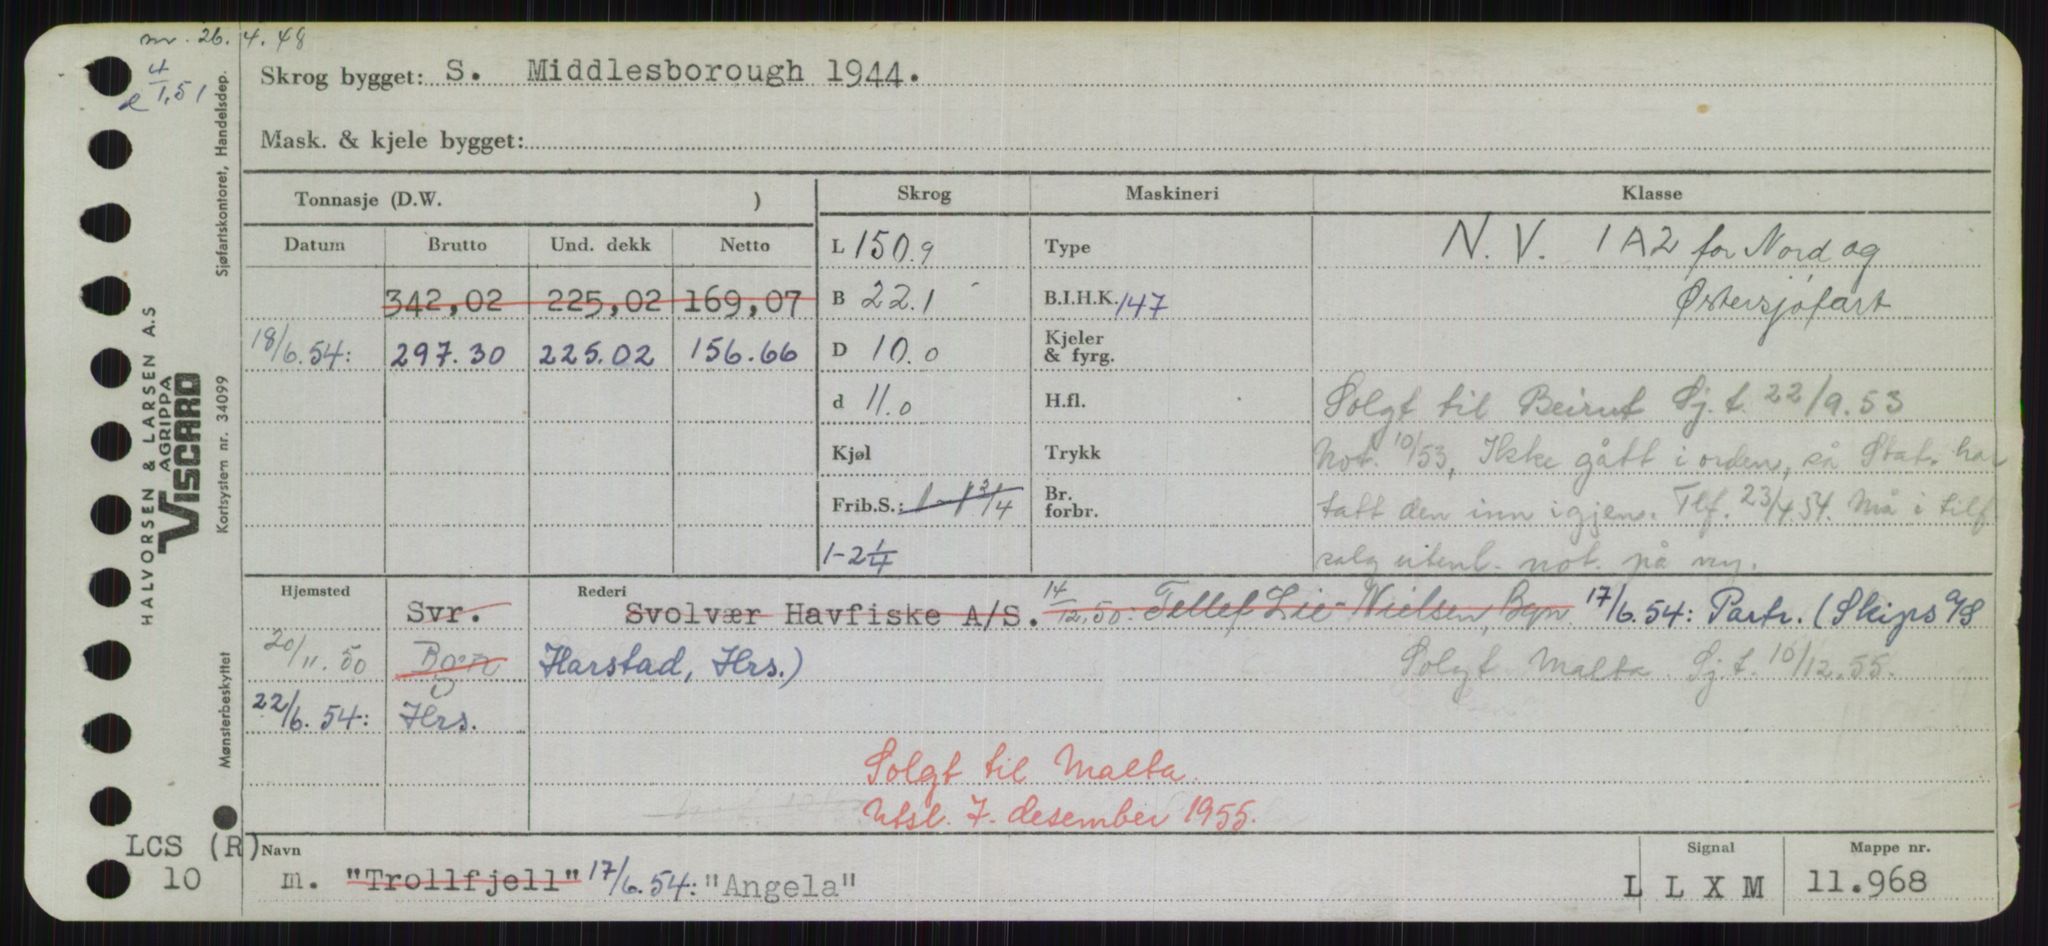 nr. 26.4.48
4/1.51
Skrog bygget: S. Middlesborough 1944.
Mask. & kjele bygget:
Tonnasje (D.W. )
Skrog
Maskineri
Klasse
Datum
Brutto
Und. dekk
Netto
342,02 225,02 169,07
18/6.54: 297.30 225.02 156.66
L 150.9
B 22.1
D 10.0
d 11.0
Kjøl
Frib.S.: 1-1 3/4
1-2 1/4
Type
B.I.H.K. 147
Kjeler
& fyrg.
H.fl.
Trykk
Br.
forbr.
N.V. 1A2 for Nord og
Østersjøfart
Solgt til Beirut Sj.t. 22/9.53
Not. 10/53, Ikke gått i orden, så Stat. har
tatt den inn igjen. Tlf. 23/4.54. Må i tilf.
salg utenl. not. på ny.
Hjemsted
Rederi
Svr. Svolvær Havfiske A/S. 14/12.50: Tellef Lie-Nielsen, Bgn. 17/6.54: Partr. (Skips A/S
20/11.50 Bgn Harstad, Hrs.) Solgt Malta Sj.t. 10/12.55.
22/6.54: Hrs.
Solgt til Malta.
Utsl. 7. desember 1955.
Navn
Signal
Mappe nr.
m. "Trollfjell" 17/6.54: "Angela"
L L X M
11.968
LCS (R)
10
HALVORSEN & LARSEN A.S
AGRIPPA
VISCARD
Kortsystem nr. 34099
Sjøfartskontoret, Handelsdep.
Mønsterbeskyttet